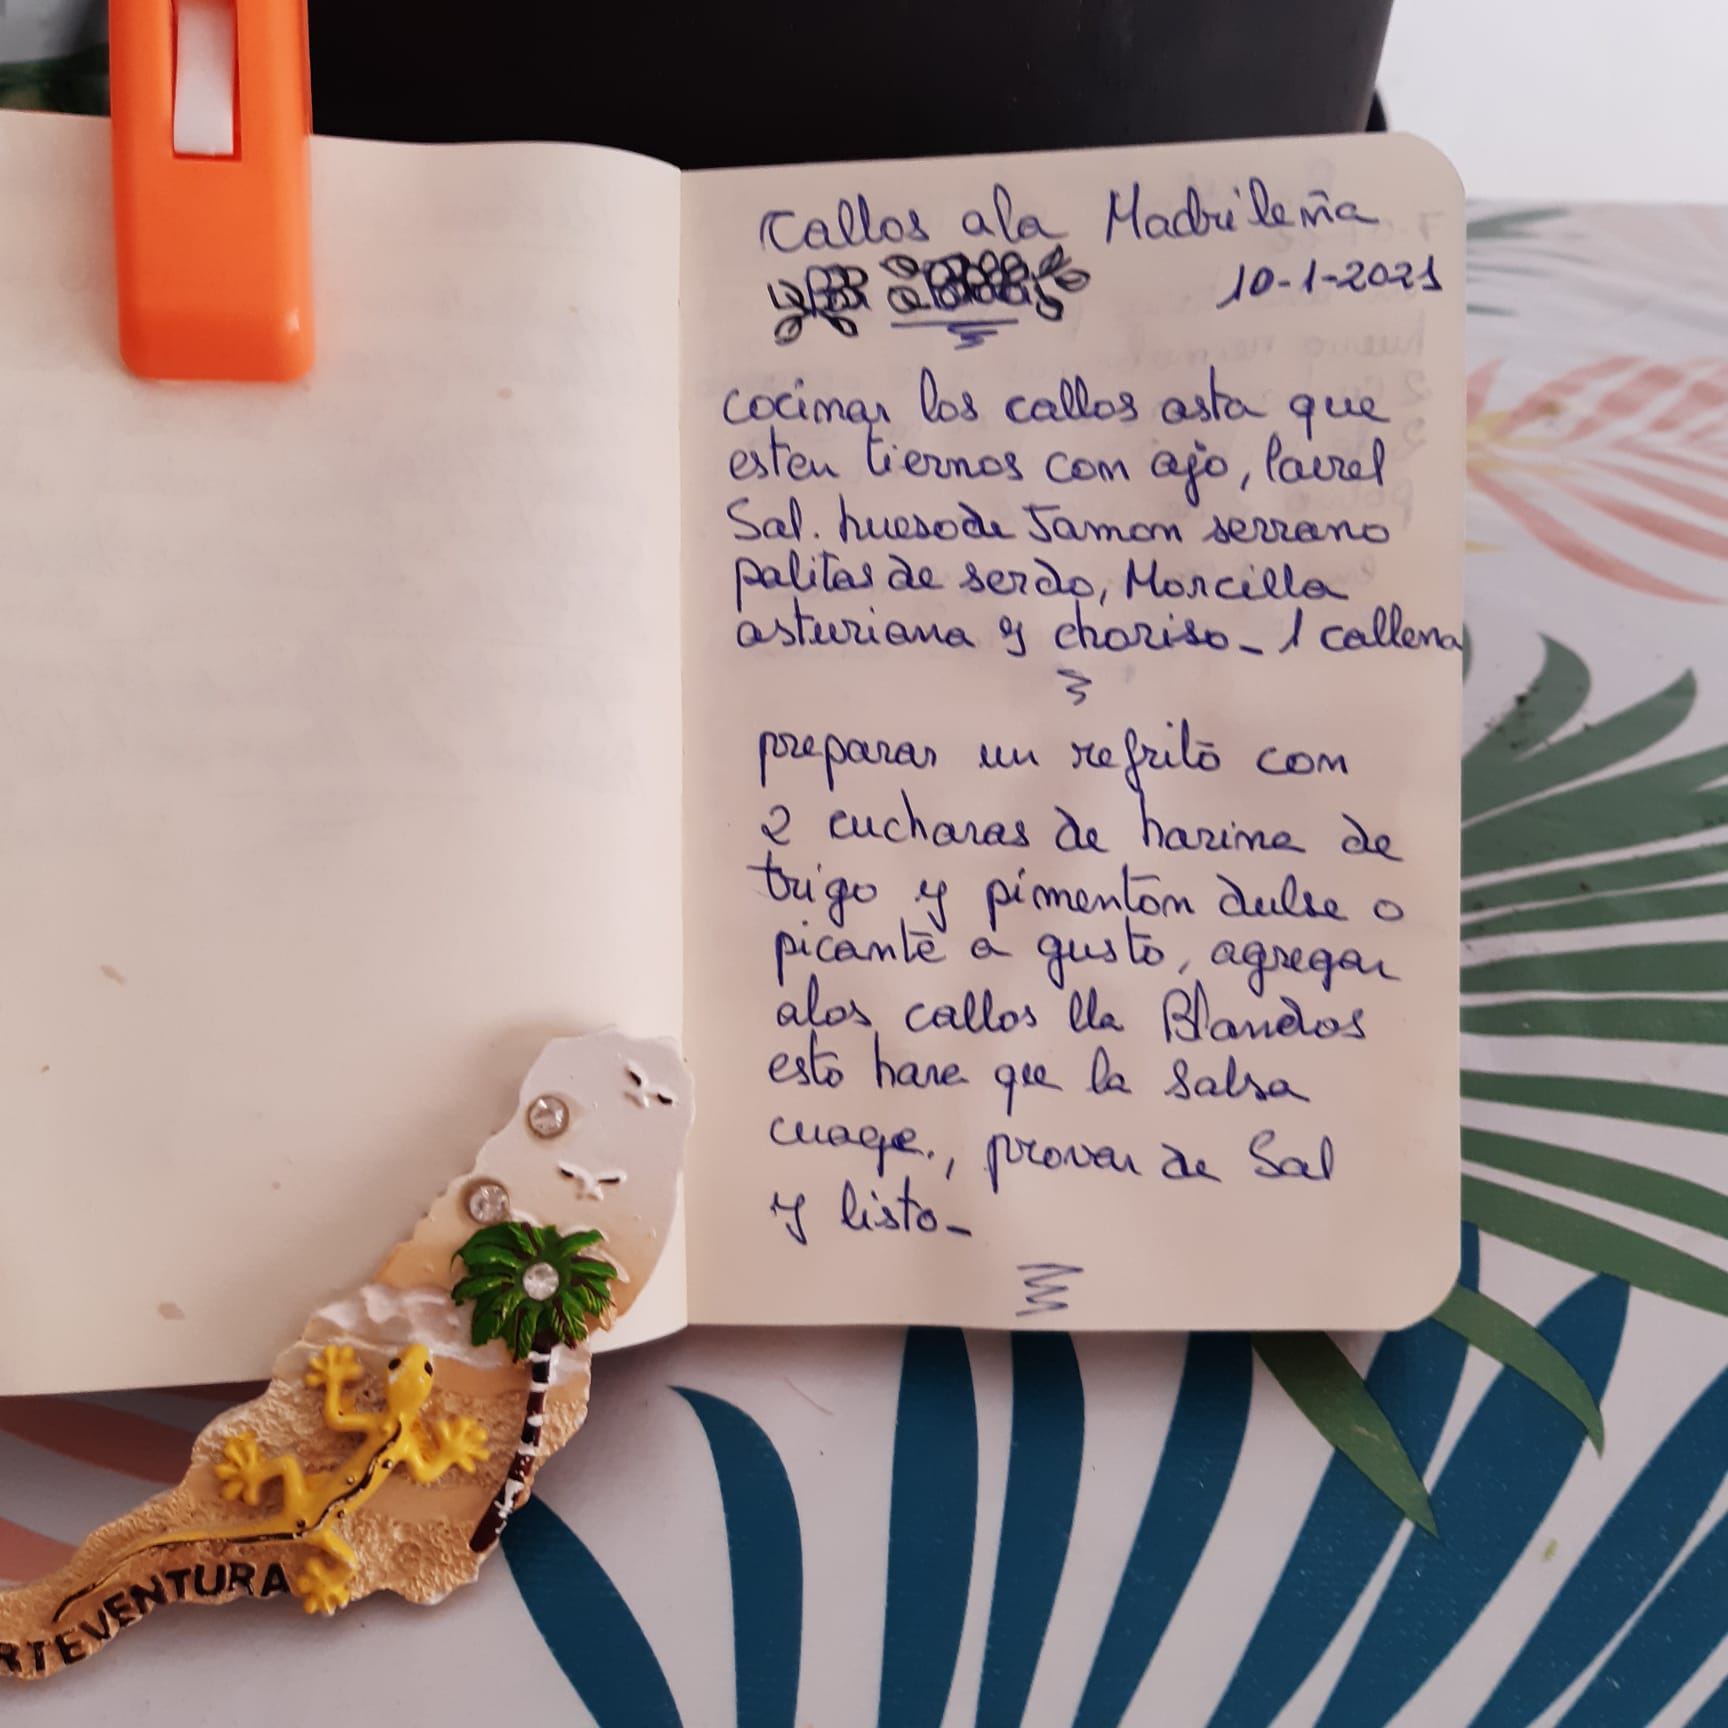 Callos ala Madrileña
10-1-2021
cocinar los callos asta que
esten tiernos con ajo, laurel
Sal. hueso de Jamon serrano
palitas de serdo, Morcilla
asturiana y choriso - 1 callena
preparar un refrito con
2 cucharas de harina de
trigo y pimenton dulse o
picante a gusto, agregar
alos callos lla Blandos
esto hase que la salsa
cuage., provar de Sal
y listo -
RTEVENTURA